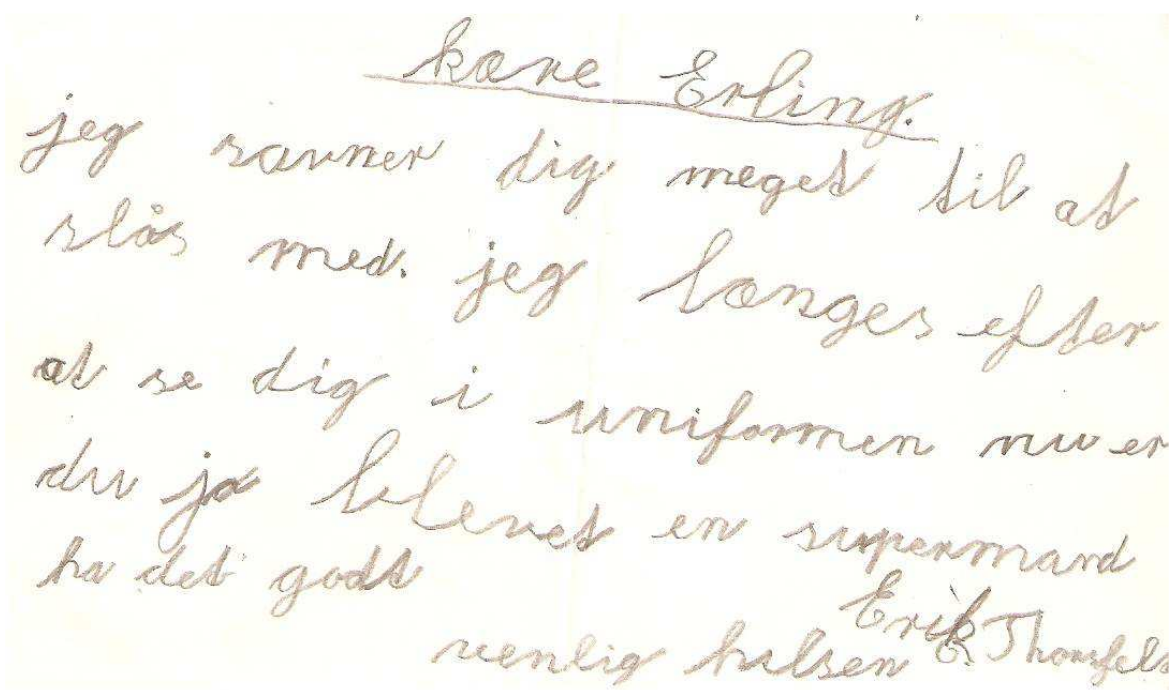 kære Erling.
jeg savner dig meget til at
slås med. jeg længes efter
at se dig i uniformen nu er
du ja blevet en supermand
ha det godt
Erik
venlig hilsen E. Thorsfelt